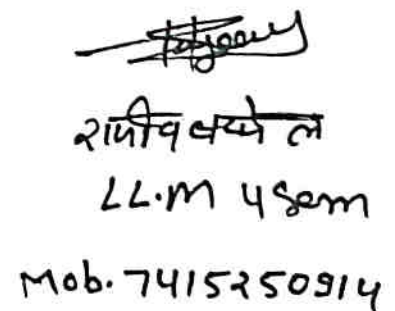 राजीव बघेल
LL.M 4 Sem
Mob. 7415250914